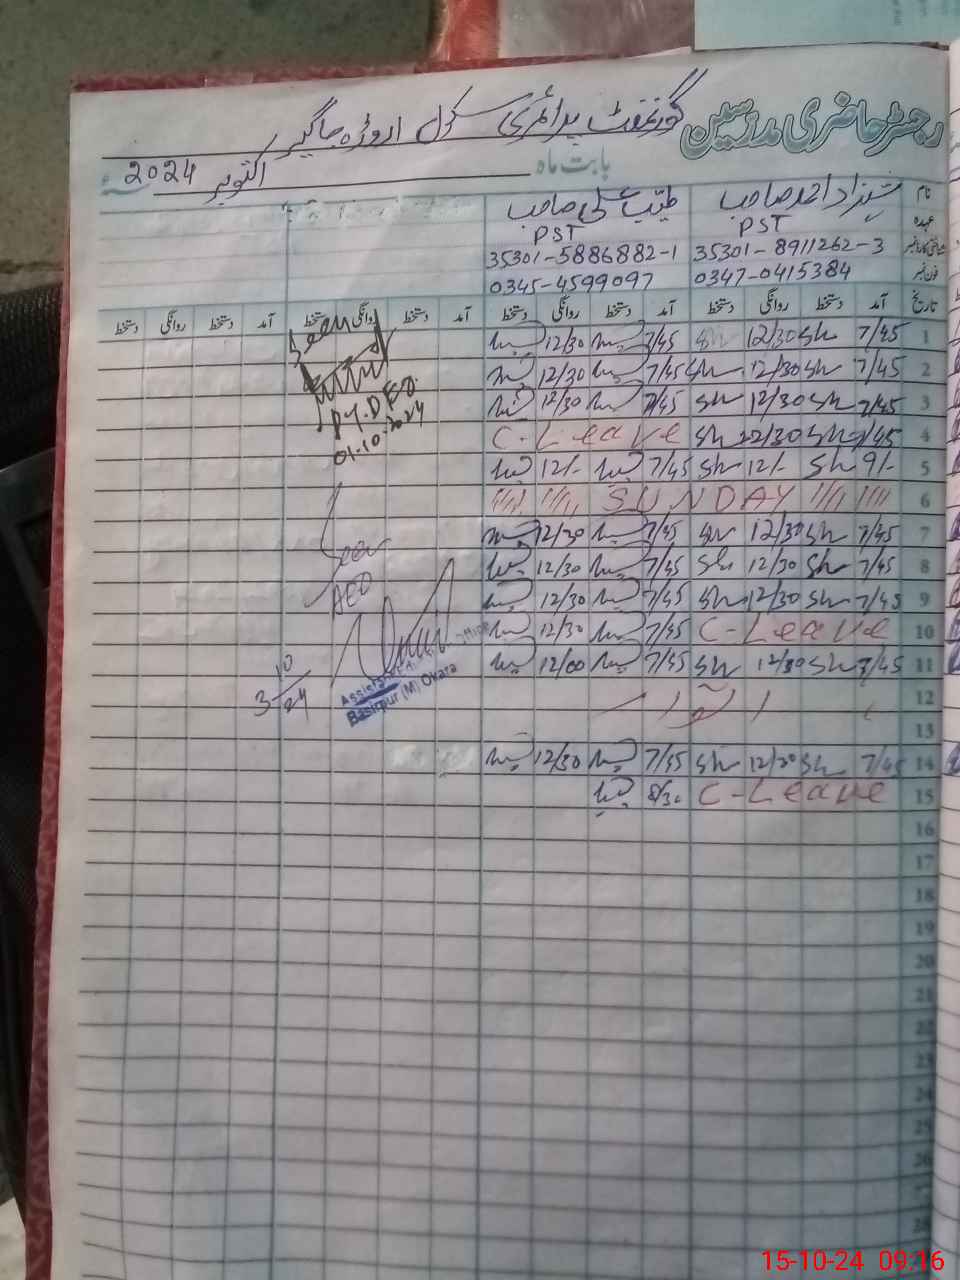 رجسٹر حاضری مدرسین گورنمنٹ پرائمری سکول اروڑہ جاگیر
بابت ماہ اکتوبر 2024ء
نام شہزاد احمد صاحب طیب علی صاحب
عہدہ PST PST
شناختی کارڈ نمبر 35301-8911262-3 35301-5886882-1
فون نمبر 0347-0415384 0345-4599097
تاریخ آمد دستخط روانگی دستخط آمد دستخط روانگی دستخط آمد دستخط روانگی دستخط آمد دستخط روانگی دستخط
1 7/45 Sh 12/30 Sh 7/45 12/30
2 7/45 Sh 12/30 Sh 7/45 12/30
3 7/45 Sh 12/30 Sh 7/45 12/30
4 7/45 Sh 12/30 Sh C-Leave
5 9/- Sh 12/- Sh 7/45 12/-
6 SUNDAY
7 7/45 Sh 12/30 Sh 7/45 12/30
8 7/45 Sh 12/30 Sh 7/45 12/30
9 7/45 Sh 12/30 Sh 7/45 12/30
10 C-Leave 7/45 12/30
11 7/45 Sh 12/30 Sh 7/45 12/00
12
13 اتوار
14 7/45 Sh 12/30 Sh 7/45 12/30
15 C-Leave 8/30
16
17
18
19
20
21
22
23
24
25
26
27
28
Seen
DY.DEO
01-10-2024
Seen
AEO
3 10/24
Assistant Office
Basirpur (M) Okara
15-10-24 09:16